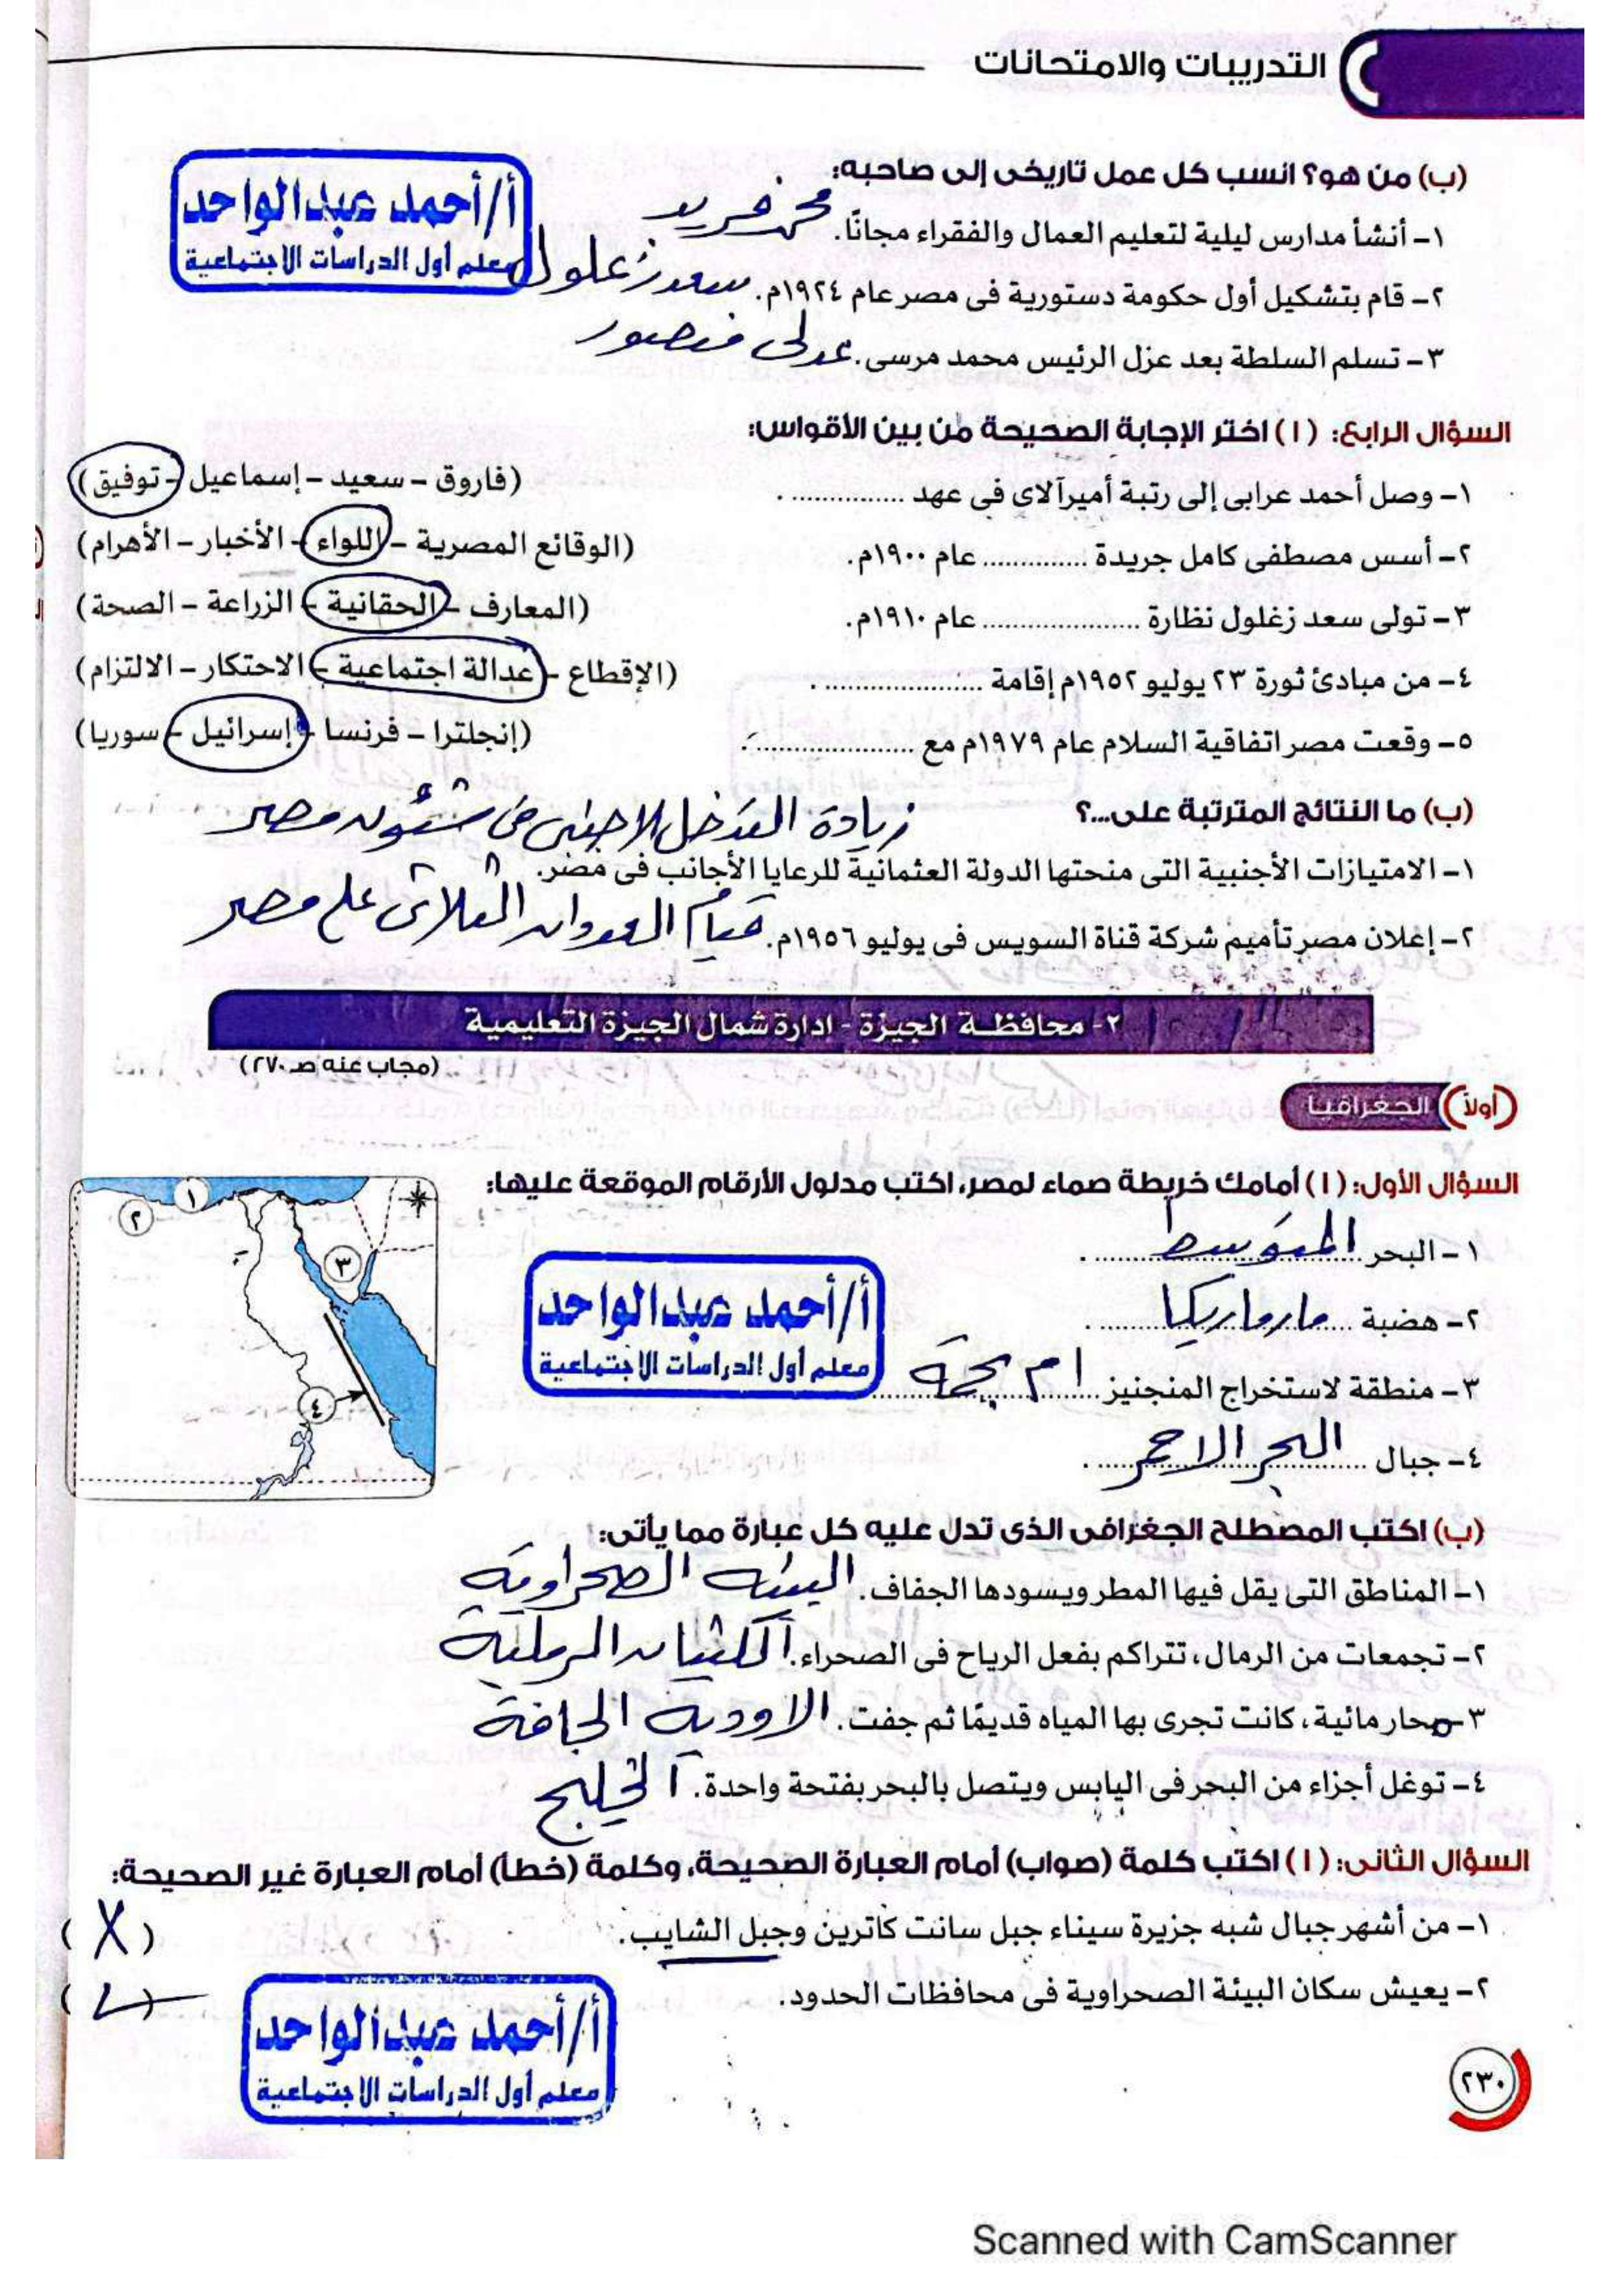 التدريبات والامتحانات
(ب) من هو؟ انسب كل عمل تاريخى إلى صاحبه:
أ/أحمد عبدالواحد
معلم أول الدراسات الاجتماعية
١- أنشأ مدارس ليلية لتعليم العمال والفقراء مجانًا. محمد فريد
٢- قام بتشكيل أول حكومة دستورية فى مصر عام ١٩٢٤م. سعد زغلول
٣- تسلم السلطة بعد عزل الرئيس محمد مرسى. عدلى منصور
السؤال الرابع: (١) اختر الإجابة الصحيحة من بين الأقواس:
١- وصل أحمد عرابى إلى رتبة أميرآلاى فى عهد ............... . (فاروق - سعيد - إسماعيل - توفيق)
٢- أسس مصطفى كامل جريدة .............. عام ١٩٠٠م. (الوقائع المصرية - اللواء - الأخبار - الأهرام)
٣- تولى سعد زغلول نظارة ..................... عام ١٩١٠م. (المعارف - الحقانية - الزراعة - الصحة)
٤- من مبادئ ثورة ٢٣ يوليو ١٩٥٢م إقامة ..................... . (الإقطاع - عدالة اجتماعية - الاحتكار - الالتزام)
٥- وقعت مصر اتفاقية السلام عام ١٩٧٩م مع ..................... . (إنجلترا - فرنسا - إسرائيل - سوريا)
(ب) ما النتائج المترتبة على...؟
زيادة التدخل الاجنبى فى شئون مصر
١- الامتيازات الأجنبية التى منحتها الدولة العثمانية للرعايا الأجانب فى مصر.
٢- إعلان مصر تأميم شركة قناة السويس فى يوليو ١٩٥٦م. قيام العدوان الثلاثى على مصر
٢- محافظة الجيزة - ادارة شمال الجيزة التعليمية
(مجاب عنه صـ ٢٧٠)
أولاً الجغرافيا
السؤال الأول: (١) أمامك خريطة صماء لمصر، اكتب مدلول الأرقام الموقعة عليها:
١
٢
٣
٤
١- البحر المتوسط .
٢- هضبة مارماريكا .
أ/أحمد عبدالواحد
معلم أول الدراسات الاجتماعية
٣- منطقة لاستخراج المنجنيز ام بجمة
٤- جبال البحر الاحمر .
(ب) اكتب المصطلح الجغرافى الذى تدل عليه كل عبارة مما يأتى:
١- المناطق التى يقل فيها المطر ويسودها الجفاف. البيئه الصحراوية
٢- تجمعات من الرمال، تتراكم بفعل الرياح فى الصحراء. الكثبان الرملية
٣- مجار مائية، كانت تجرى بها المياه قديمًا ثم جفت. الاودية الجافة
٤- توغل أجزاء من البحر فى اليابس ويتصل بالبحر بفتحة واحدة. الخليج
السؤال الثانى: (١) اكتب كلمة (صواب) أمام العبارة الصحيحة، وكلمة (خطأ) أمام العبارة غير الصحيحة:
١- من أشهر جبال شبه جزيرة سيناء جبل سانت كاترين وجبل الشايب. (X)
٢- يعيش سكان البيئة الصحراوية فى محافظات الحدود. (✓)
أ/أحمد عبدالواحد
معلم أول الدراسات الاجتماعية
٢٣٠
Scanned with CamScanner